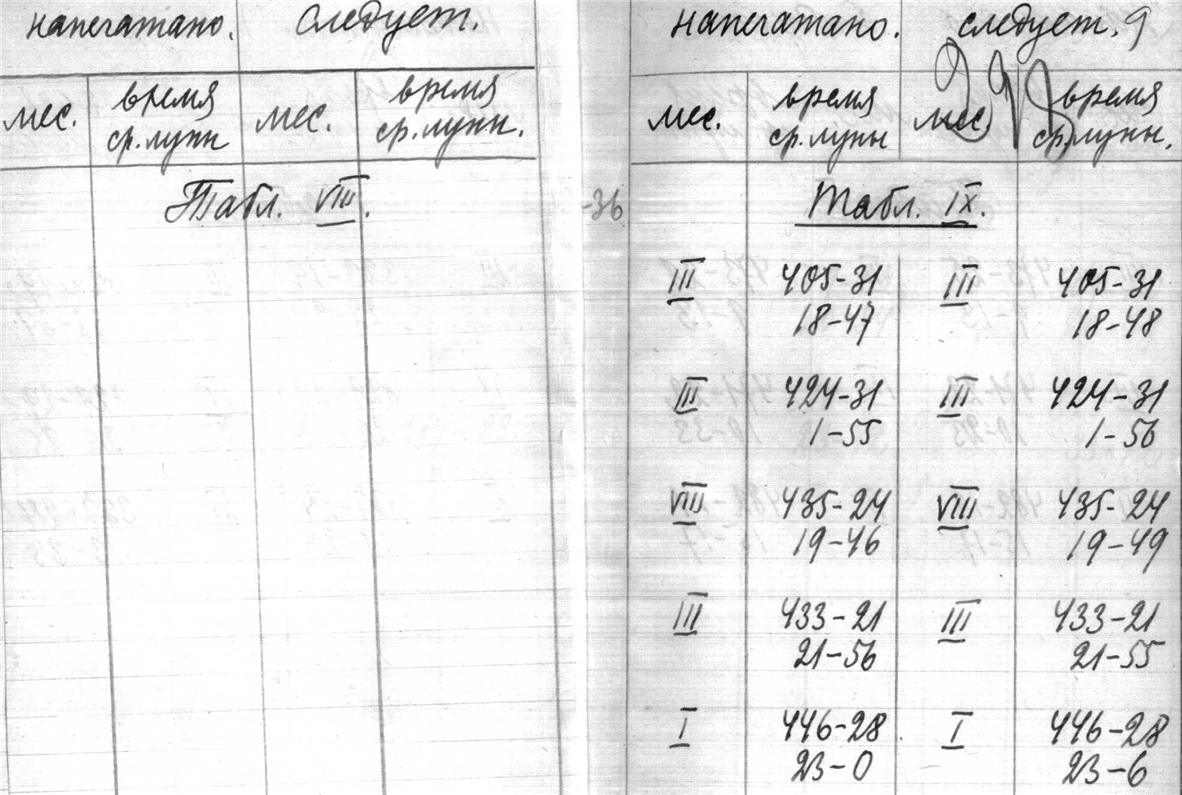 напечатано. следует.
мес. время ср. лупн мес. время ср. лупн.
Табл. VIII.
-36
напечатано. следует. 9
мес. время ср. луны мес. время ср. лунн.
Табл. IX.
III 405-31 III 405-31
18-47 18-48
III 424-31 III 424-31
1-55 1-56
VIII 435-24 VIII 435-24
19-46 19-49
III 433-21 III 433-21
21-56 21-55
I 446-28 I 446-28
23-0 23-6